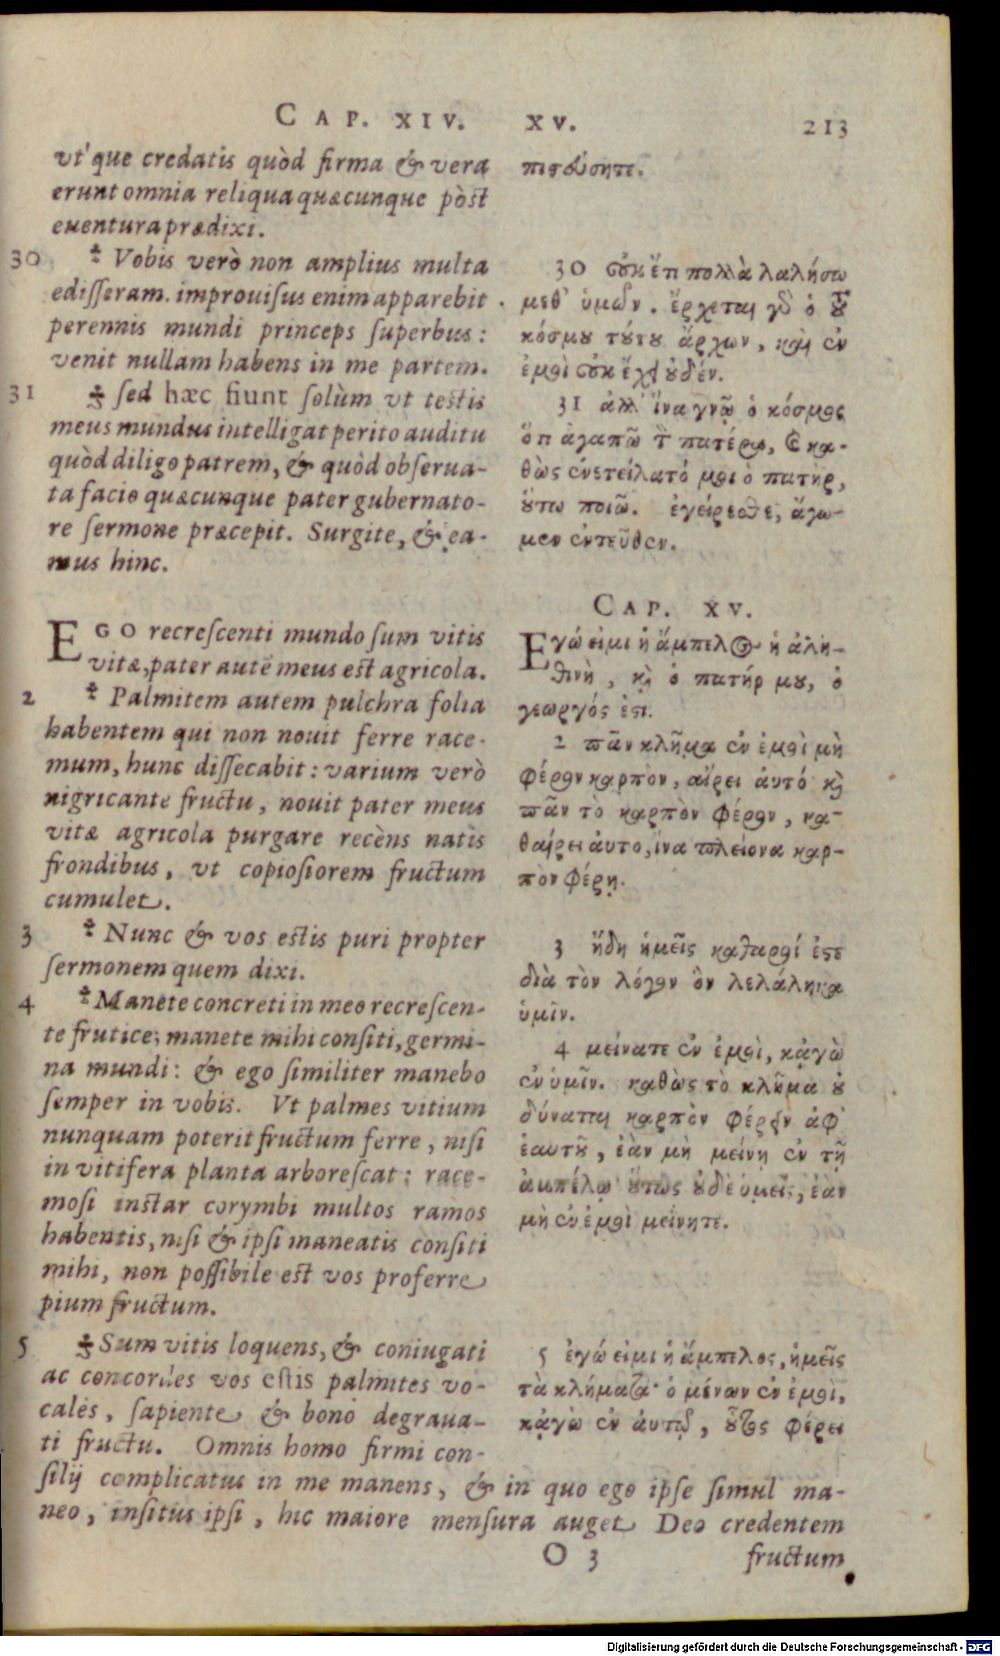 CAP. XIV. XV. 213
vt'que credatis quòd firma & vera
erunt omnia reliqua quæcunque pòst
euentura prædixi.
30 Vobis verò non amplius multa
edisseram. improuisus enim apparebit
perennis mundi princeps superbus:
venit nullam habens in me partem.
31 sed hæc fiunt solùm vt testis
meus mundus intelligat perito auditu
quòd diligo patrem, & quòd obserua-
ta facio quæcunque pater gubernato-
re sermone præcepit. Surgite, & ea-
mus hinc.
EGO recrescenti mundo sum vitis
vitæ, pater autē meus est agricola.
2 Palmitem autem pulchra folia
habentem qui non nouit ferre race-
mum, hunc dissecabit: varium verò
nigricante fructu, nouit pater meus
vitæ agricola purgare recèns natis
frondibus, vt copiosiorem fructum
cumulet.
3 Nunc & vos estis puri propter
sermonem quem dixi.
4 Manete concreti in meo recrescen-
te frutice; manete mihi consiti, germi-
na mundi: & ego similiter manebo
semper in vobis. Vt palmes vitium
nunquam poterit fructum ferre, nisi
in vitifera planta arborescat: race-
mosi instar corymbi multos ramos
habentis, nisi & ipsi maneatis consiti
mihi, non possibile est vos proferre
pium fructum.
5 Sum vitis loquens, & coniugati
ac concordes vos estis palmites vo-
calès, sapiente & bono degraua-
ti fructu. Omnis homo firmi con-
silij complicatus in me manens, & in quo ego ipse simul ma-
neo, insitus ipsi, hic maiore mensura auget Deo credentem
πιστεύσητε.
30 οὐκ ἔτι πολλὰ λαλήσω
μεθ' ὑμῶν. ἔρχεται γὰρ ὁ τοῦ
κόσμου τούτου ἄρχων, καὶ ἐν
ἐμοὶ οὐκ ἔχει οὐδέν.
31 ἀλλ' ἵνα γνῷ ὁ κόσμος
ὅτι ἀγαπῶ τὸν πατέρα, καὶ κα-
θὼς ἐνετείλατό μοι ὁ πατὴρ,
οὕτω ποιῶ. ἐγείρεσθε, ἄγω-
μεν ἐντεῦθεν.
CAP. XV.
Εγώ εἰμι ἡ ἄμπελος ἡ ἀλη-
θινὴ, καὶ ὁ πατήρ μου, ὁ
γεωργός ἐστι.
2 πᾶν κλῆμα ἐν ἐμοὶ μὴ
φέρον καρπὸν, αἴρει ἀυτό καὶ
πᾶν τὸ καρπὸν φέρον, κα-
θαίρει ἀυτο, ἵνα πλειονα καρ-
πὸν φέρῃ.
3 ἤδη ἡμεῖς καθαροί ἐστε
διὰ τὸν λόγον ὃν λελάληκα
ὑμῖν.
4 μείνατε ἐν ἐμοὶ, κᾀγὼ
ἐν ὑμῖν. καθὼς τὸ κλῆμα οὐ
δύναται καρπὸν φέρειν ἀφ'
ἑαυτοῦ, ἐὰν μὴ μείνῃ ἐν τῇ
ἀμπέλῳ οὕτως οὐδε ὑμεῖς, ἐὰν
μὴ ἐν ἐμοὶ μείνητε.
5 ἐγώ εἰμι ἡ ἄμπελος, ἡμεῖς
τὰ κλήματα· ὁ μένων ἐν ἐμοὶ,
κᾀγὼ ἐν ἀυτῷ, οὗτος φέρει
O 3 fructum
Digitalisierung gefördert durch die Deutsche Forschungsgemeinschaft - DFG